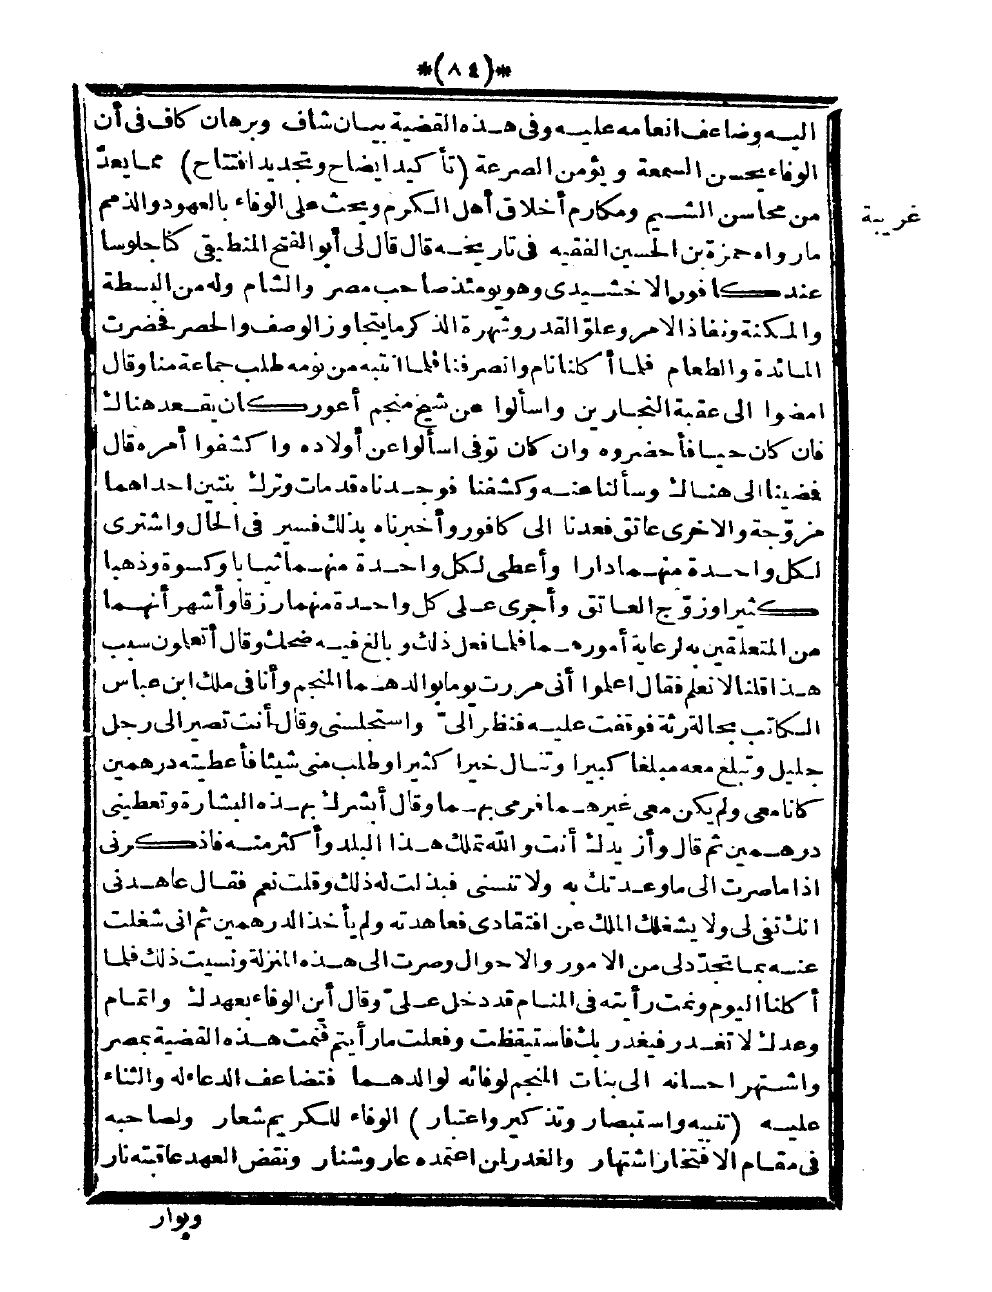 *(٨٤)*
اليه وضاعف انعامه عليه وفى هذه القضية بيان شاف وبرهان كاف فى أن
الوفاء يحسن السمعة ويؤمن الصرعة (تأكيد ايضاح وتجديد افتتاح) مما يعدّ
من محاسن الشيم ومكارم أخلاق أهل الكرم ويحث على الوفاء بالعهود والذمم
غريبة
مارواه حمزة بن الحسين الفقيه فى تاريخه قال قال لى أبو الفتح المنطيقى كنا جلوسا
عند كافور الاخشيدى وهو يومئذ صاحب مصر والشام وله من البسطة
والمكنة ونفاذ الامر وعلوّ القدر وشهرة الذكر ما يتجاوز الوصف والحصر فحضرت
المائدة والطعام فلما أكلنا نام وانصرفنا فلما انتبه من نومه طلب جماعة منا وقال
امضوا الى عقبة النجارين واسألوا عن شيخ منجم أعور كان يقعد هناك
فان كان حيا فأحضروه وان كان توفى اسألوا عن أولاده واكشفوا أمره قال
فضينا الى هناك وسألنا عنه وكشفنا فوجدناه قد مات وترك بنتين احداهما
مزوّجة والاخرى عاتق فعدنا الى كافور وأخبرناه بذلك فسير فى الحال واشترى
لكل واحدة منهما دارا وأعطى لكل واحدة منهما ثيابا وكسوة وذهبا
كثيرا وزوّج العاتق وأجرى على كل واحدة منهما رزقا وأشهر أنهما
من المتعلقين به لرعاية أمورهما فلما فعل ذلك وبالغ فيه ضحك وقال أتعلمون سبب
هذا قلنا لا نعلم فقال اعلموا أنى مررت يوما بوالدهما المنجم وأنا فى ملك ابن عباس
الكاتب بحالة رثة فوقفت عليه فنظر الىّ واستجلسنى وقال أنت تصير الى رجل
جليل وتبلغ معه مبلغا كبيرا وتنال خيرا كثيرا وطلب منى شيئا فأعطيته درهمين
كانا معى ولم يكن معى غيرهما فرمى بهما وقال أبشرك بهذه البشارة وتعطينى
درهمين ثم قال وأزيدك أنت والله تملك هذا البلد وأكثر منه فاذكرنى
اذا ما صرت الى ما وعدتك به ولا تنسنى فبذلت له ذلك وقلت نعم فقال عاهدنى
انك تفى لى ولا يشغلك الملك عن افتقادى فعاهدته ولم يأخذ الدرهمين ثم انى شغلت
عنه بما يتجدّدلى من الامور والاحوال وصرت الى هذه المنزلة ونسيت ذلك فلما
أكلنا اليوم ونمت رأيته فى المنام قد دخل علىّ وقال أين الوفاء بعهدك واتمام
وعدك لا تغدر فيغدر بك فاستيقظت وفعلت ما رأيتم فنمت هذه القضية بمصر
واشتهر احسانه الى بنات المنجم لوفائه لوالدهما فتضاعف الدعاء له والثناء
عليه (تنبيه واستبصار وتذكير واعتبار) الوفاء للكريم شعار ولصاحبه
فى مقام الافتخار اشتهار والغدر لمن اعتمده عار وشنار ونقض العهد عاقبته نار
وبوار